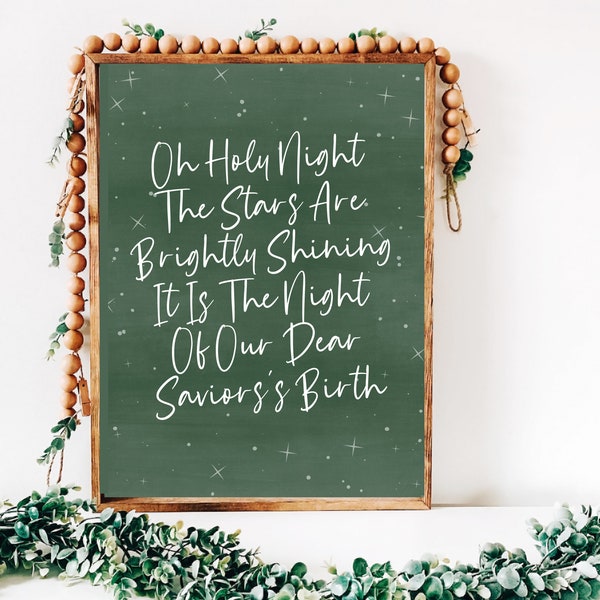 Oh Holy Night
The Stars Are
Brightly Shining
It Is The Night
Of Our Dear
Saviors's Birth